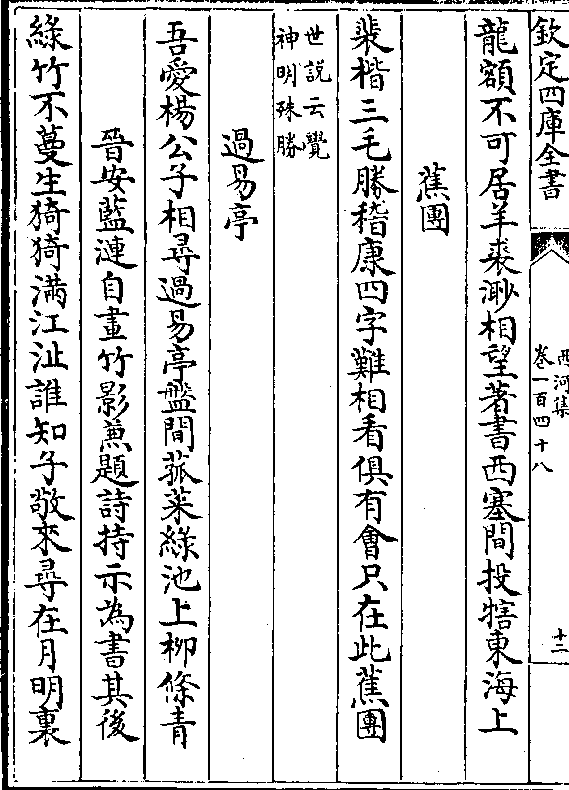 欽定四庫全書
西河集
卷一百四十八
十二
龍額不可居羊裘渺相望著書西塞間投犗東海上
蕉團
裴楷三毛勝嵇康四字難相看俱有會只在此蕉團
世説云覺
神明殊勝
過易亭
吾愛楊公子相尋過易亭盤間菰菜緑池上栁條青
晉安藍漣自畫竹影兼題詩持示為書其後
緑竹不蔓生猗猗滿江沚誰知子敬來尋在月明裏